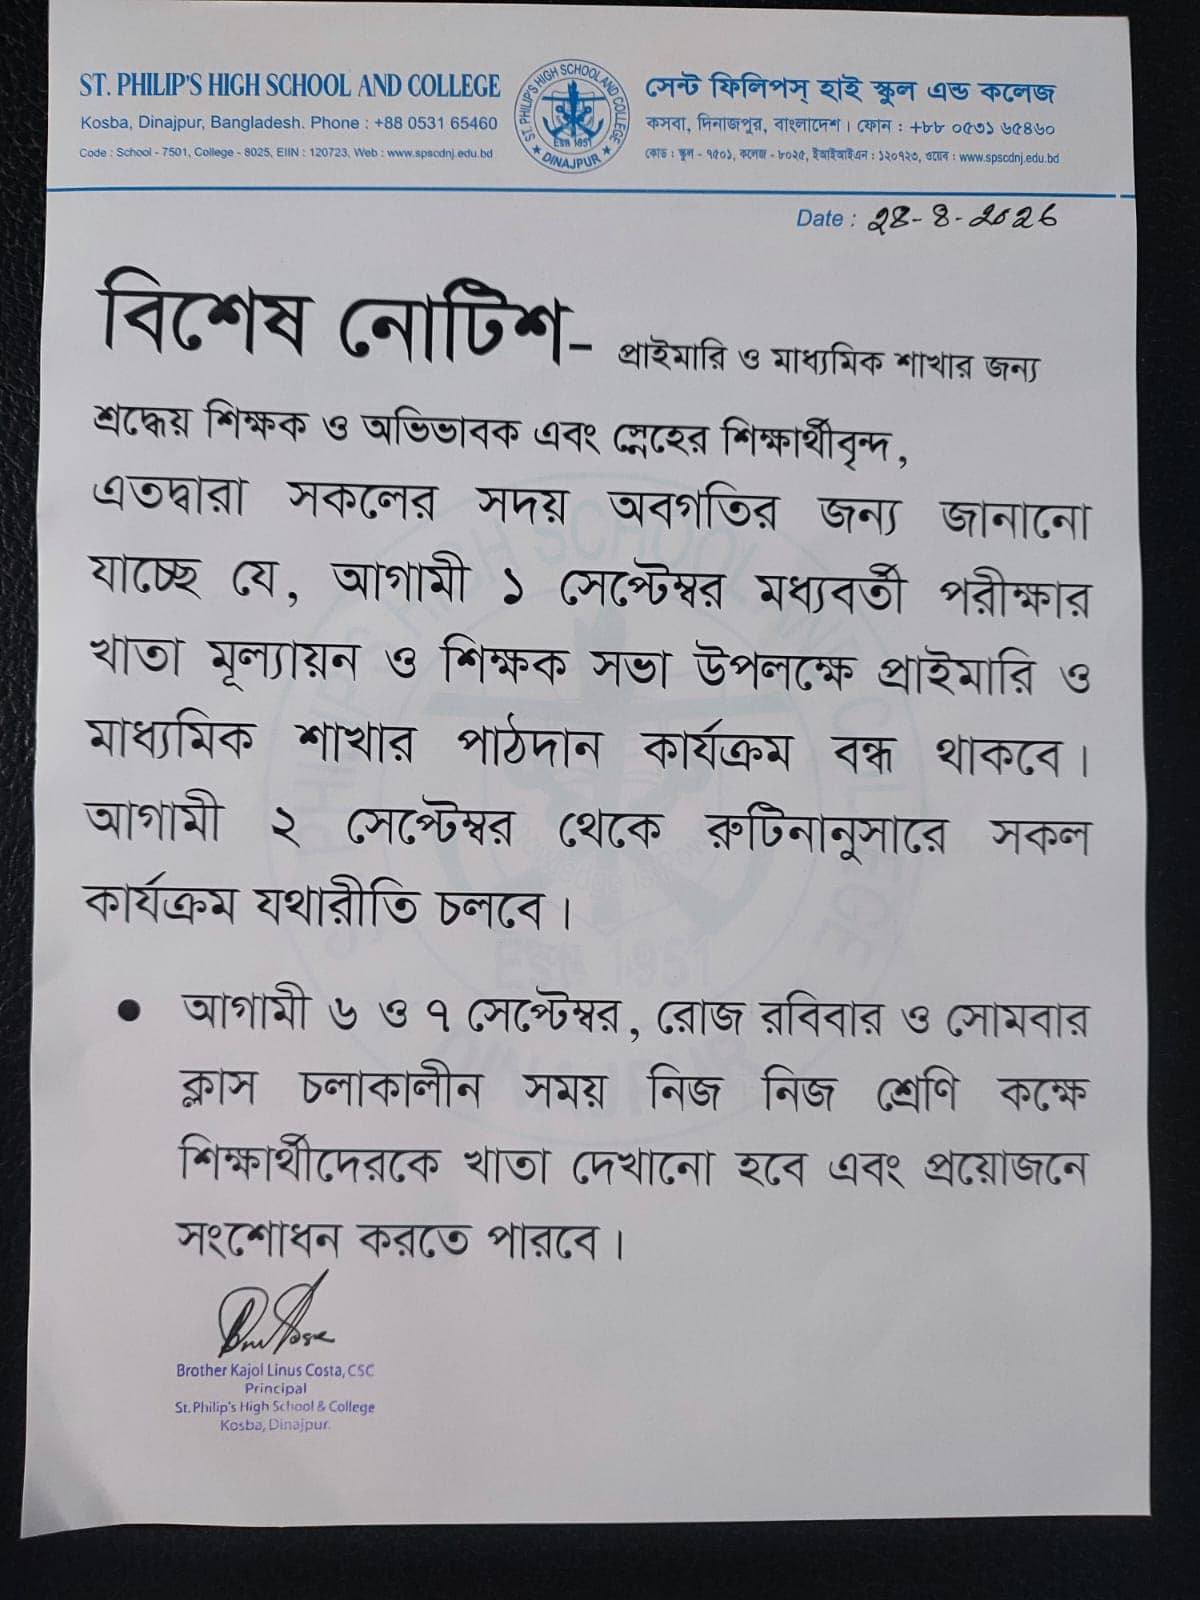 ST. PHILIP'S HIGH SCHOOL AND COLLEGE
Kosba, Dinajpur, Bangladesh. Phone : +88 0531 65460
Code : School - 7501, College - 8025, EIIN : 120723, Web : www.spscdnj.edu.bd
ST. PHILIP'S HIGH SCHOOL AND COLLEGE
ESTD 1951
★ DINAJPUR ★
সেন্ট ফিলিপস্ হাই স্কুল এন্ড কলেজ
কসবা, দিনাজপুর, বাংলাদেশ। ফোন : +৮৮ ০৫৩১ ৬৫৪৬০
কোড : স্কুল - ৭৫০১, কলেজ - ৮০২৫, ইআইআইএন : ১২০৭২৩, ওয়েব : www.spscdnj.edu.bd
Date : 28-8-2026
বিশেষ নোটিশ- প্রাইমারি ও মাধ্যমিক শাখার জন্য
শ্রদ্ধেয় শিক্ষক ও অভিভাবক এবং স্নেহের শিক্ষার্থীবৃন্দ,
এতদ্বারা সকলের সদয় অবগতির জন্য জানানো
যাচ্ছে যে, আগামী ১ সেপ্টেম্বর মধ্যবর্তী পরীক্ষার
খাতা মূল্যায়ন ও শিক্ষক সভা উপলক্ষে প্রাইমারি ও
মাধ্যমিক শাখার পাঠদান কার্যক্রম বন্ধ থাকবে।
আগামী ২ সেপ্টেম্বর থেকে রুটিনানুসারে সকল
কার্যক্রম যথারীতি চলবে।
● আগামী ৬ ও ৭ সেপ্টেম্বর, রোজ রবিবার ও সোমবার
ক্লাস চলাকালীন সময় নিজ নিজ শ্রেণি কক্ষে
শিক্ষার্থীদেরকে খাতা দেখানো হবে এবং প্রয়োজনে
সংশোধন করতে পারবে।
Brother Kajol Linus Costa, CSC
Principal
St. Philip's High School & College
Kosba, Dinajpur.